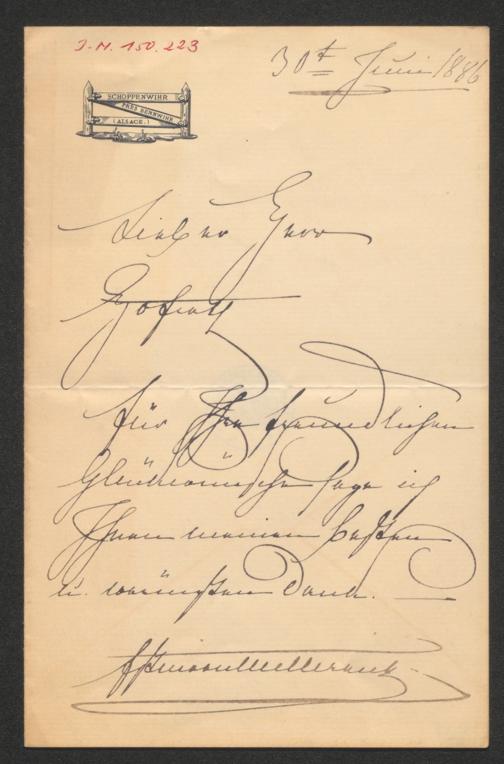 I.N. 150.223
30t Juni 1886
SCHOPPENWIHR
PRÈS BENNWIHR
(ALSACE.)
Lieber Herr
Hofrath
Für Ihre freundlichen
Glückwünsche sage ich
Ihnen meinen besten
u. wärmsten Dank.